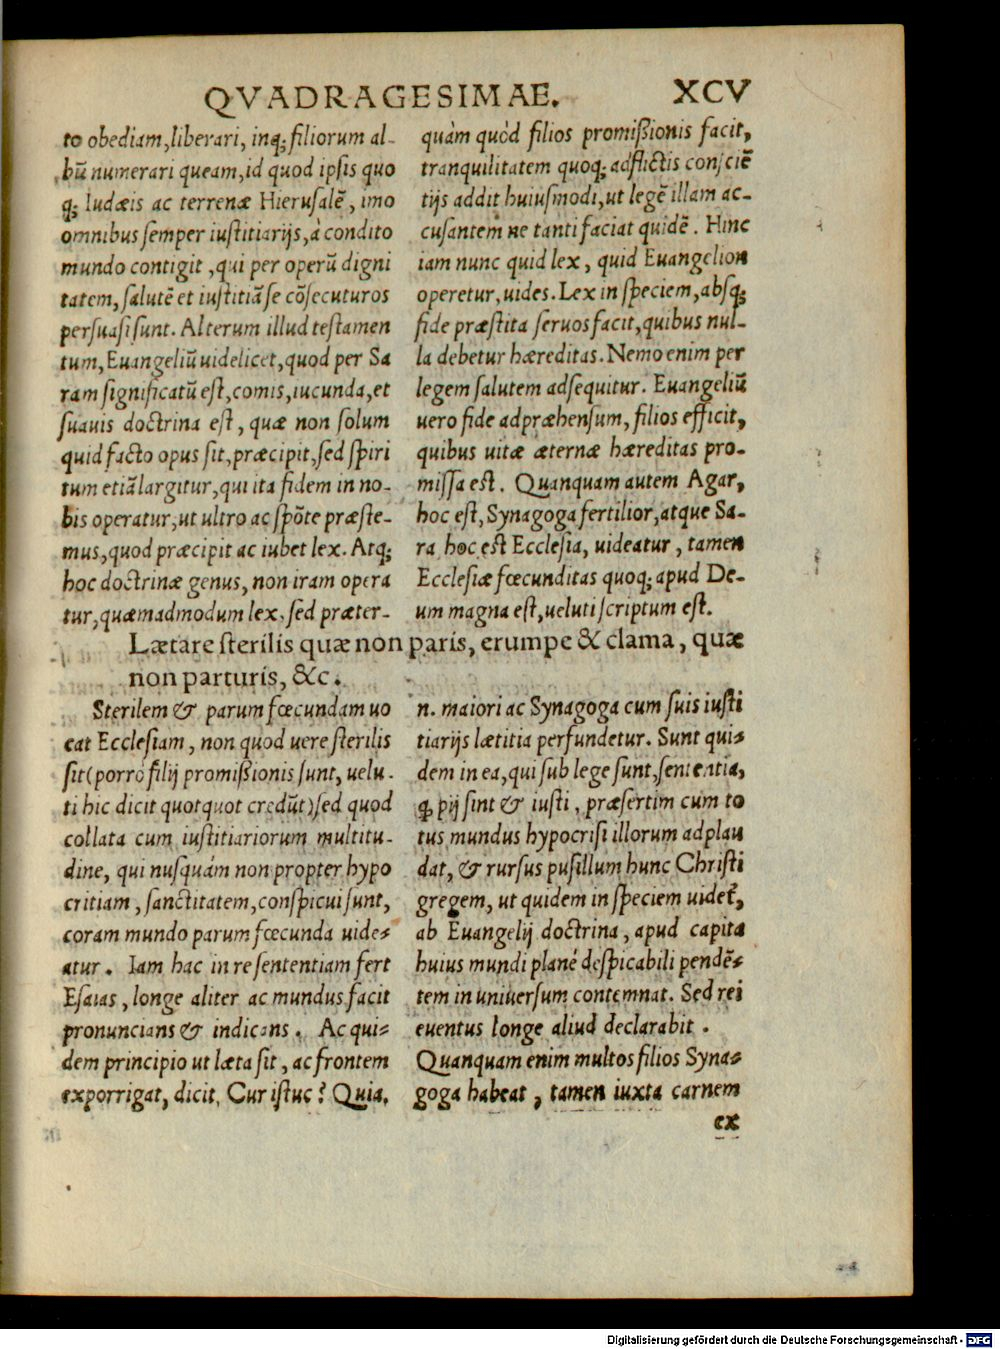 QVADRAGESIMAE. XCV
to obediam, liberari, inq; filiorum al-
bū numerari queam, id quod ipsis quo
q; Iudæis ac terrenæ Hierusalē, imo
omnibus semper iustitiarijs, à condito
mundo contigit, qui per operū digni
tatem, salutē et iustitiā se cōsecuturos
persuasi sunt. Alterum illud testamen
tum, Euangeliū uidelicet, quod per Sa
ram significatū est, comis, iucunda, et
suauis doctrina est, quæ non solum
quid facto opus sit, præcipit, sed spiri
tum etiā largitur, qui ita fidem in no-
bis operatur, ut ultro ac spōte præste-
mus, quod præcipit ac iubet lex. Atq;
hoc doctrinæ genus, non iram opera
tur, quæmadmodum lex, sed præter-
quàm quòd filios promißionis facit,
tranquilitatem quoq; adflictis consciē
tijs addit huiusmodi, ut legē illam ac-
cusantem ne tanti faciat quidē. Hinc
iam nunc quid lex, quid Euangelion
operetur, uides. Lex in speciem, absq;
fide præstita seruos facit, quibus nul-
la debetur hæreditas. Nemo enim per
legem salutem adsequitur. Euangeliū
uero fide adpræhensum, filios efficit,
quibus uitæ æternæ hæreditas pro-
missa est. Quanquam autem Agar,
hoc est, Synagoga fertilior, atque Sa-
ra hoc est Ecclesia, uideatur, tamen
Ecclesiæ fœcunditas quoq; apud De-
um magna est, ueluti scriptum est.
Lætare sterilis quæ non paris, erumpe & clama, quæ
non parturis, &c.
Sterilem & parum fœcundam uo
cat Ecclesiam, non quod uere sterilis
sit (porrò filij promißionis sunt, uelu-
ti hic dicit quotquot credūt) sed quod
collata cum iustitiariorum multitu-
dine, qui nusquám non propter hypo
critiam, sanctitatem, conspicui sunt,
coram mundo parum fœcunda uide-
atur. Iam hac in re sententiam fert
Esaias, longe aliter ac mundus facit
pronuncians & indicans. Ac qui-
dem principio ut læta sit, ac frontem
exporrigat, dicit. Cur istuc? Quia.
n. maiori ac Synagoga cum suis iusti
tiarijs lætitia perfundetur. Sunt qui-
dem in ea, qui sub lege sunt, sententia,
q pij sint & iusti, præsertim cum to
tus mundus hypocrisi illorum adplau
dat, & rursus pusillum hunc Christi
gregem, ut quidem in speciem uidet,
ab Euangelij doctrina, apud capita
huius mundi planè despicabili pendē-
tem in uniuersum contemnat. Sed rei
euentus longe aliud declarabit.
Quanquam enim multos filios Syna-
goga habeat, tamen iuxta carnem
ex
Digitalisierung gefördert durch die Deutsche Forschungsgemeinschaft - DFG